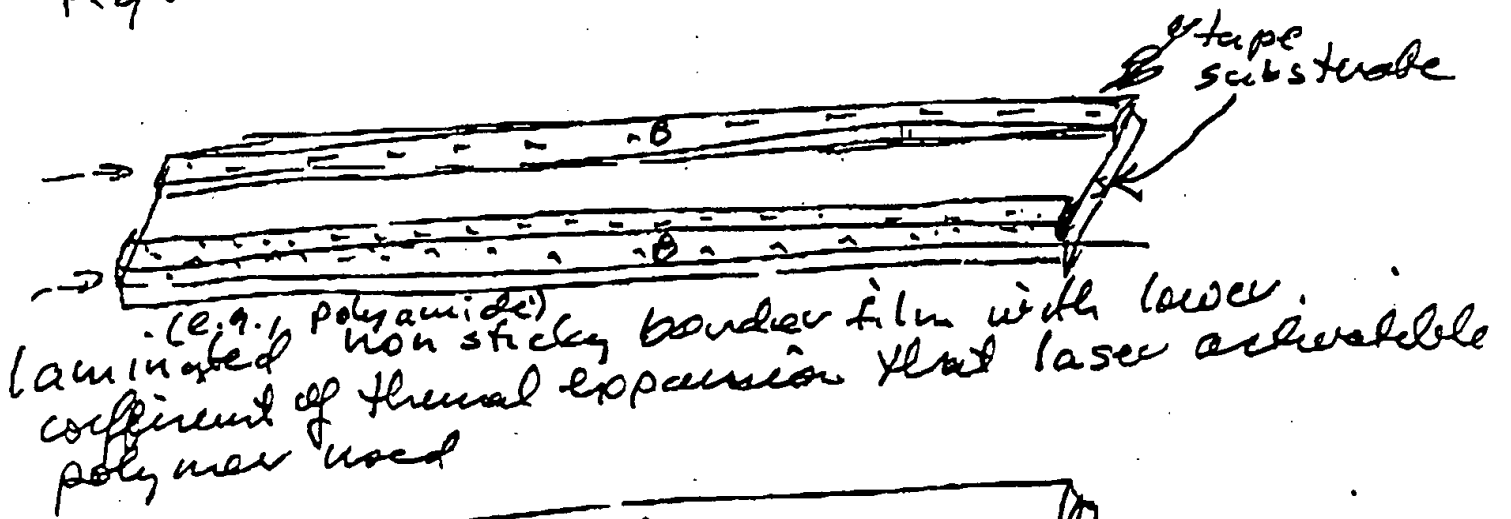 tape
substrate
B
B
(e.g., polyamide)
laminated non sticky border film with lower
coefficient of thermal expansion that laser activatible
polymer used